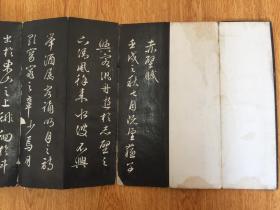 赤壁賦
壬戌之秋七月既望蘇子
與客泛舟遊於赤壁之
下清風徐来水波不興
舉酒属客誦明月之詩
歌窈窕之章少焉月
出於東山之上徘徊於斗